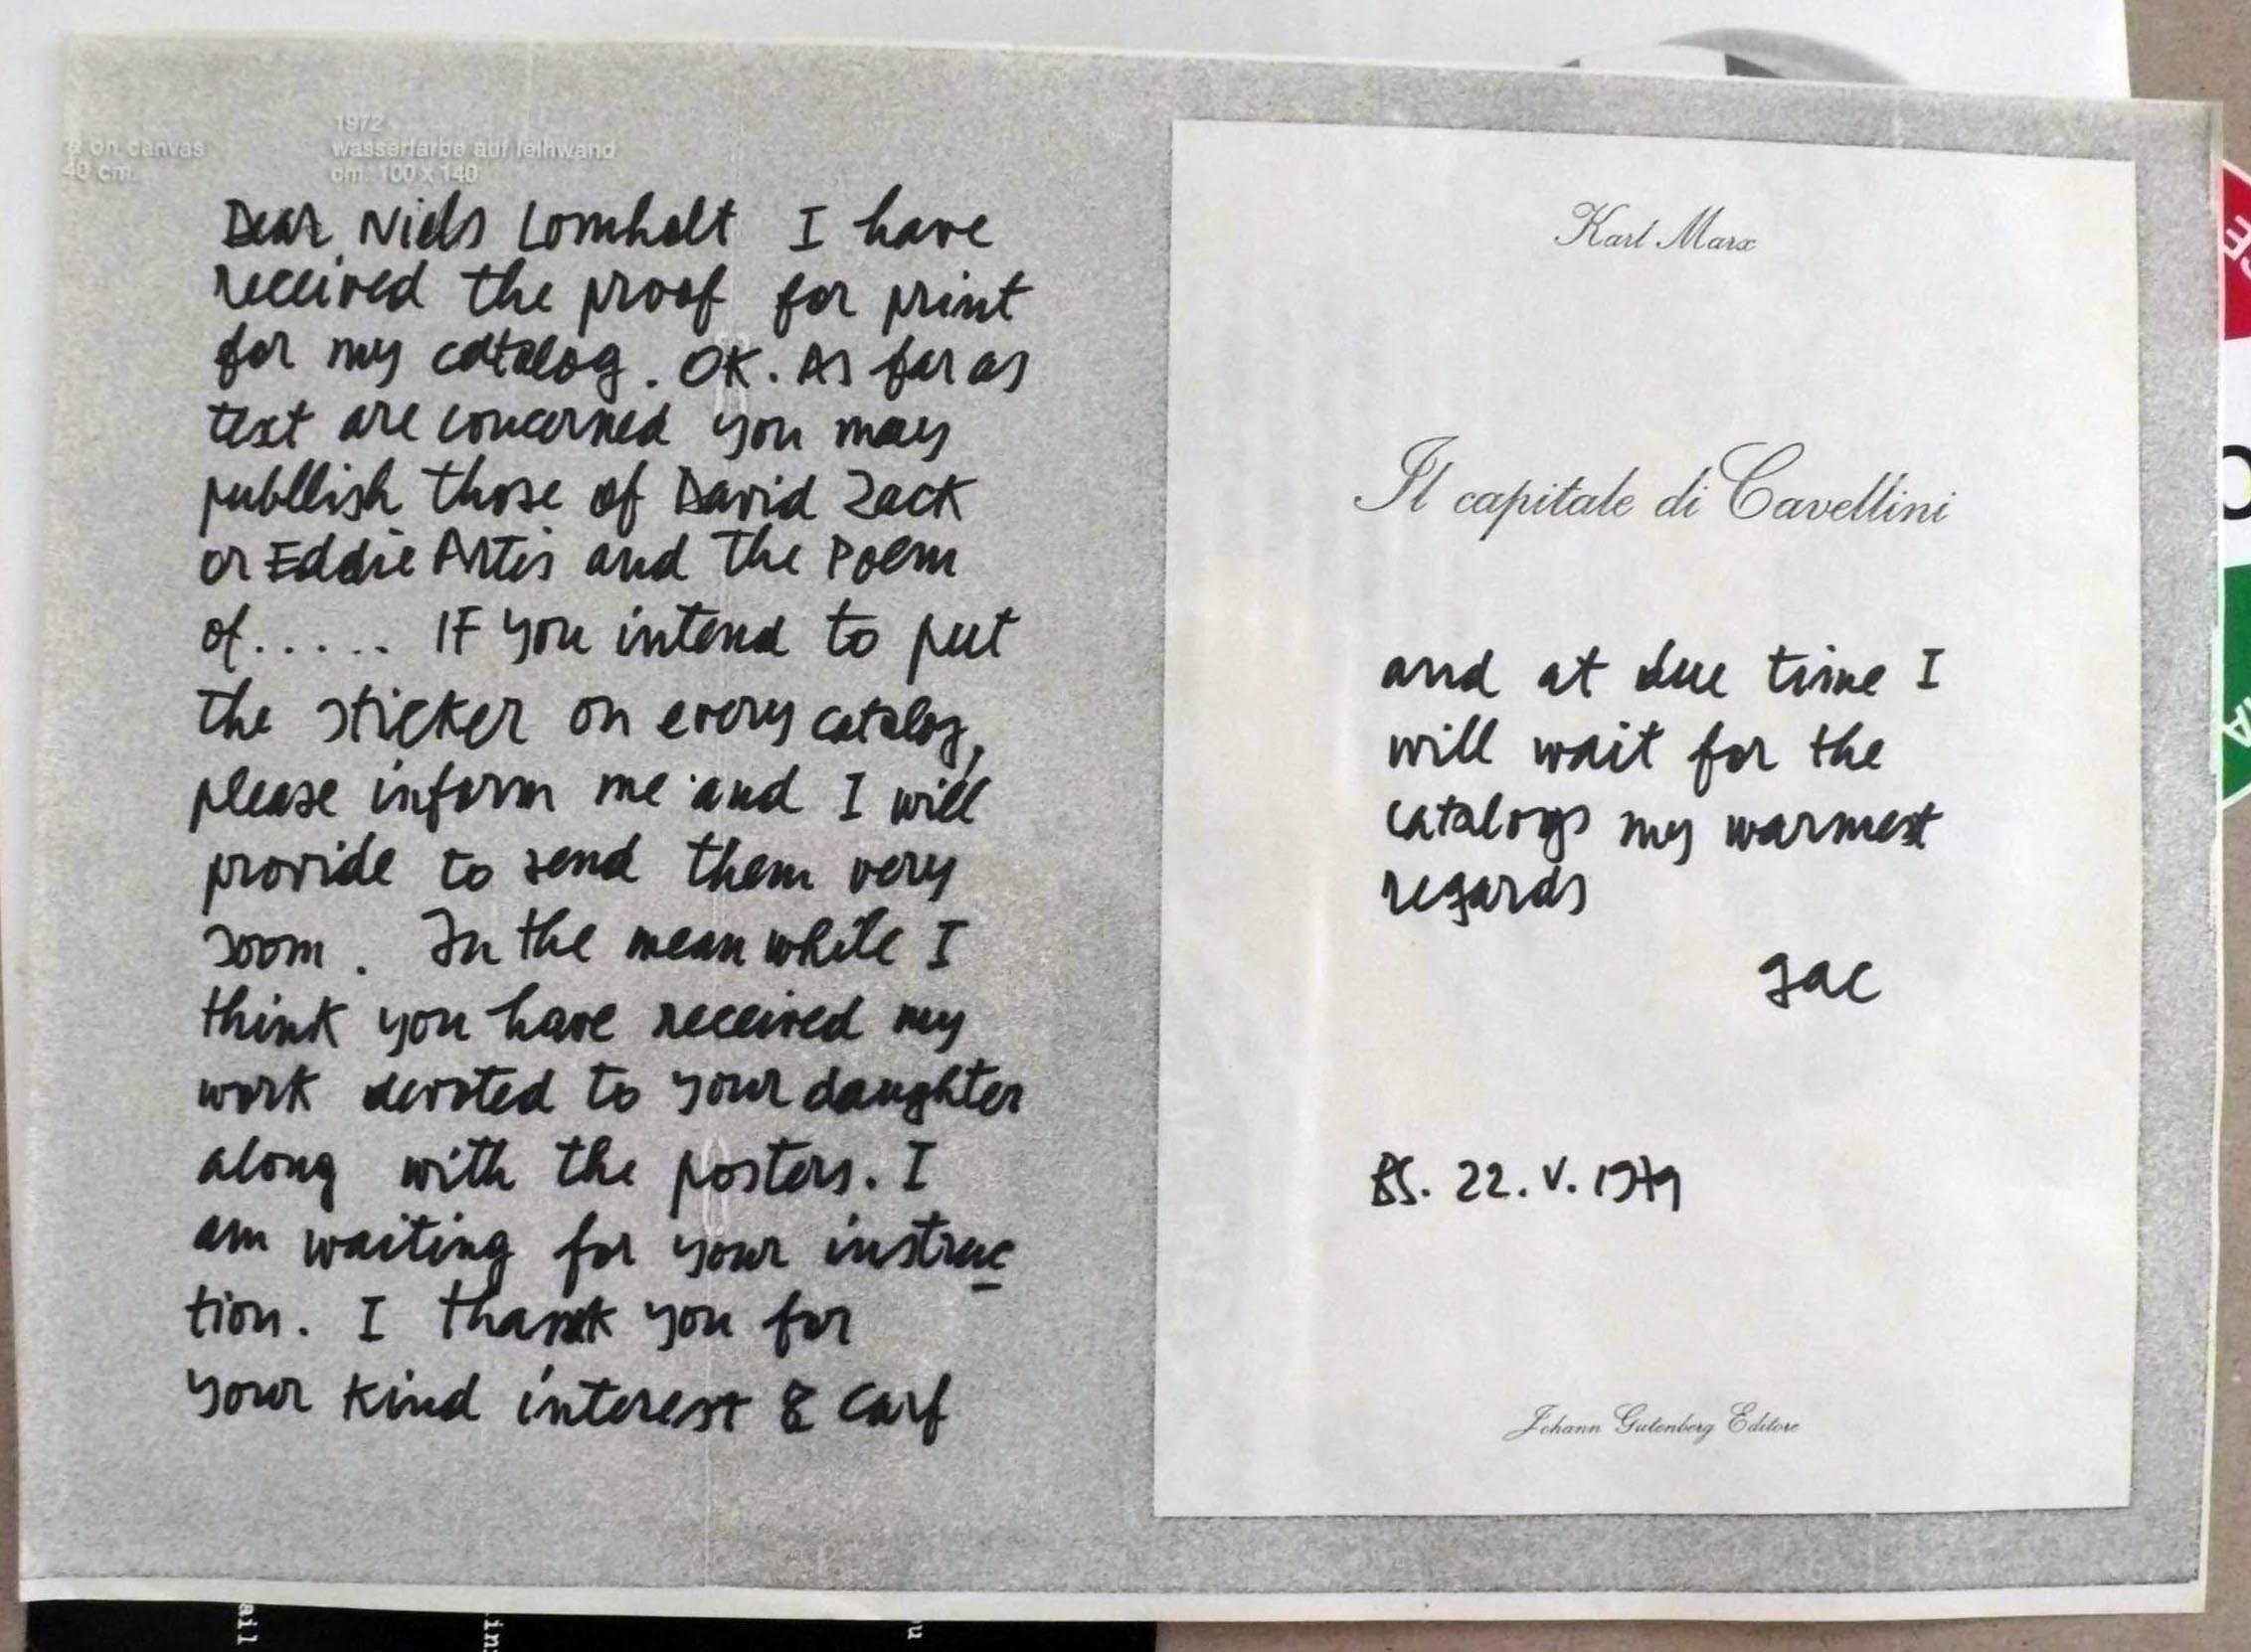 1972
on canvas
wasserfarbe auf leihwand
40 cm.
cm. 100 x 140
Dear Niels Lomholt I have
received the proof for print
for my catalog. OK. As far as
text are concerned you may
publlish those of David Zack
or Eddie Artis and the Poem
of..... IF you intend to put
the sticker on every catalog,
please inform me and I will
provide to send them very
soom. In the mean while I
think you have received my
work devoted to your daughter
along with the posters. I
am waiting for your instruc
tion. I thank you for
your kind interest & carf
Karl Marx
Il capitale di Cavellini
and at due time I
will wait for the
catalogs my warmest
regards
gac
BS. 22. V. 1979
Johann Gutenberg Editore
ail
in
u